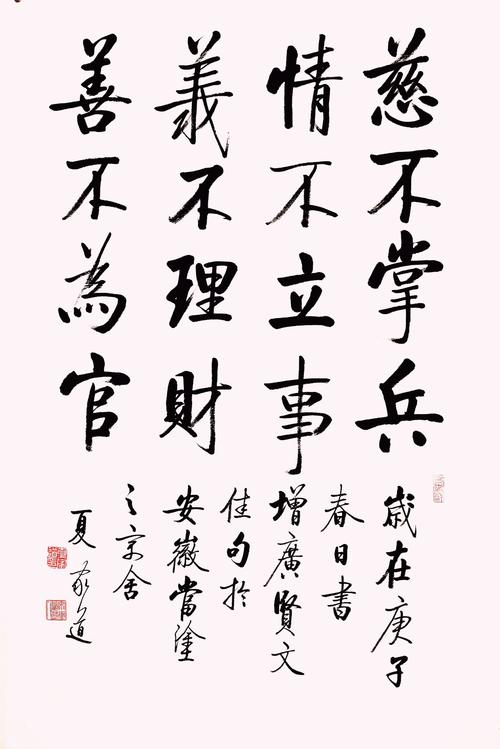 慈不掌兵
情不立事
義不理財
善不為官
歲在庚子
春日書
增廣賢文
佳句於
安徽當塗
之京舍
夏家道